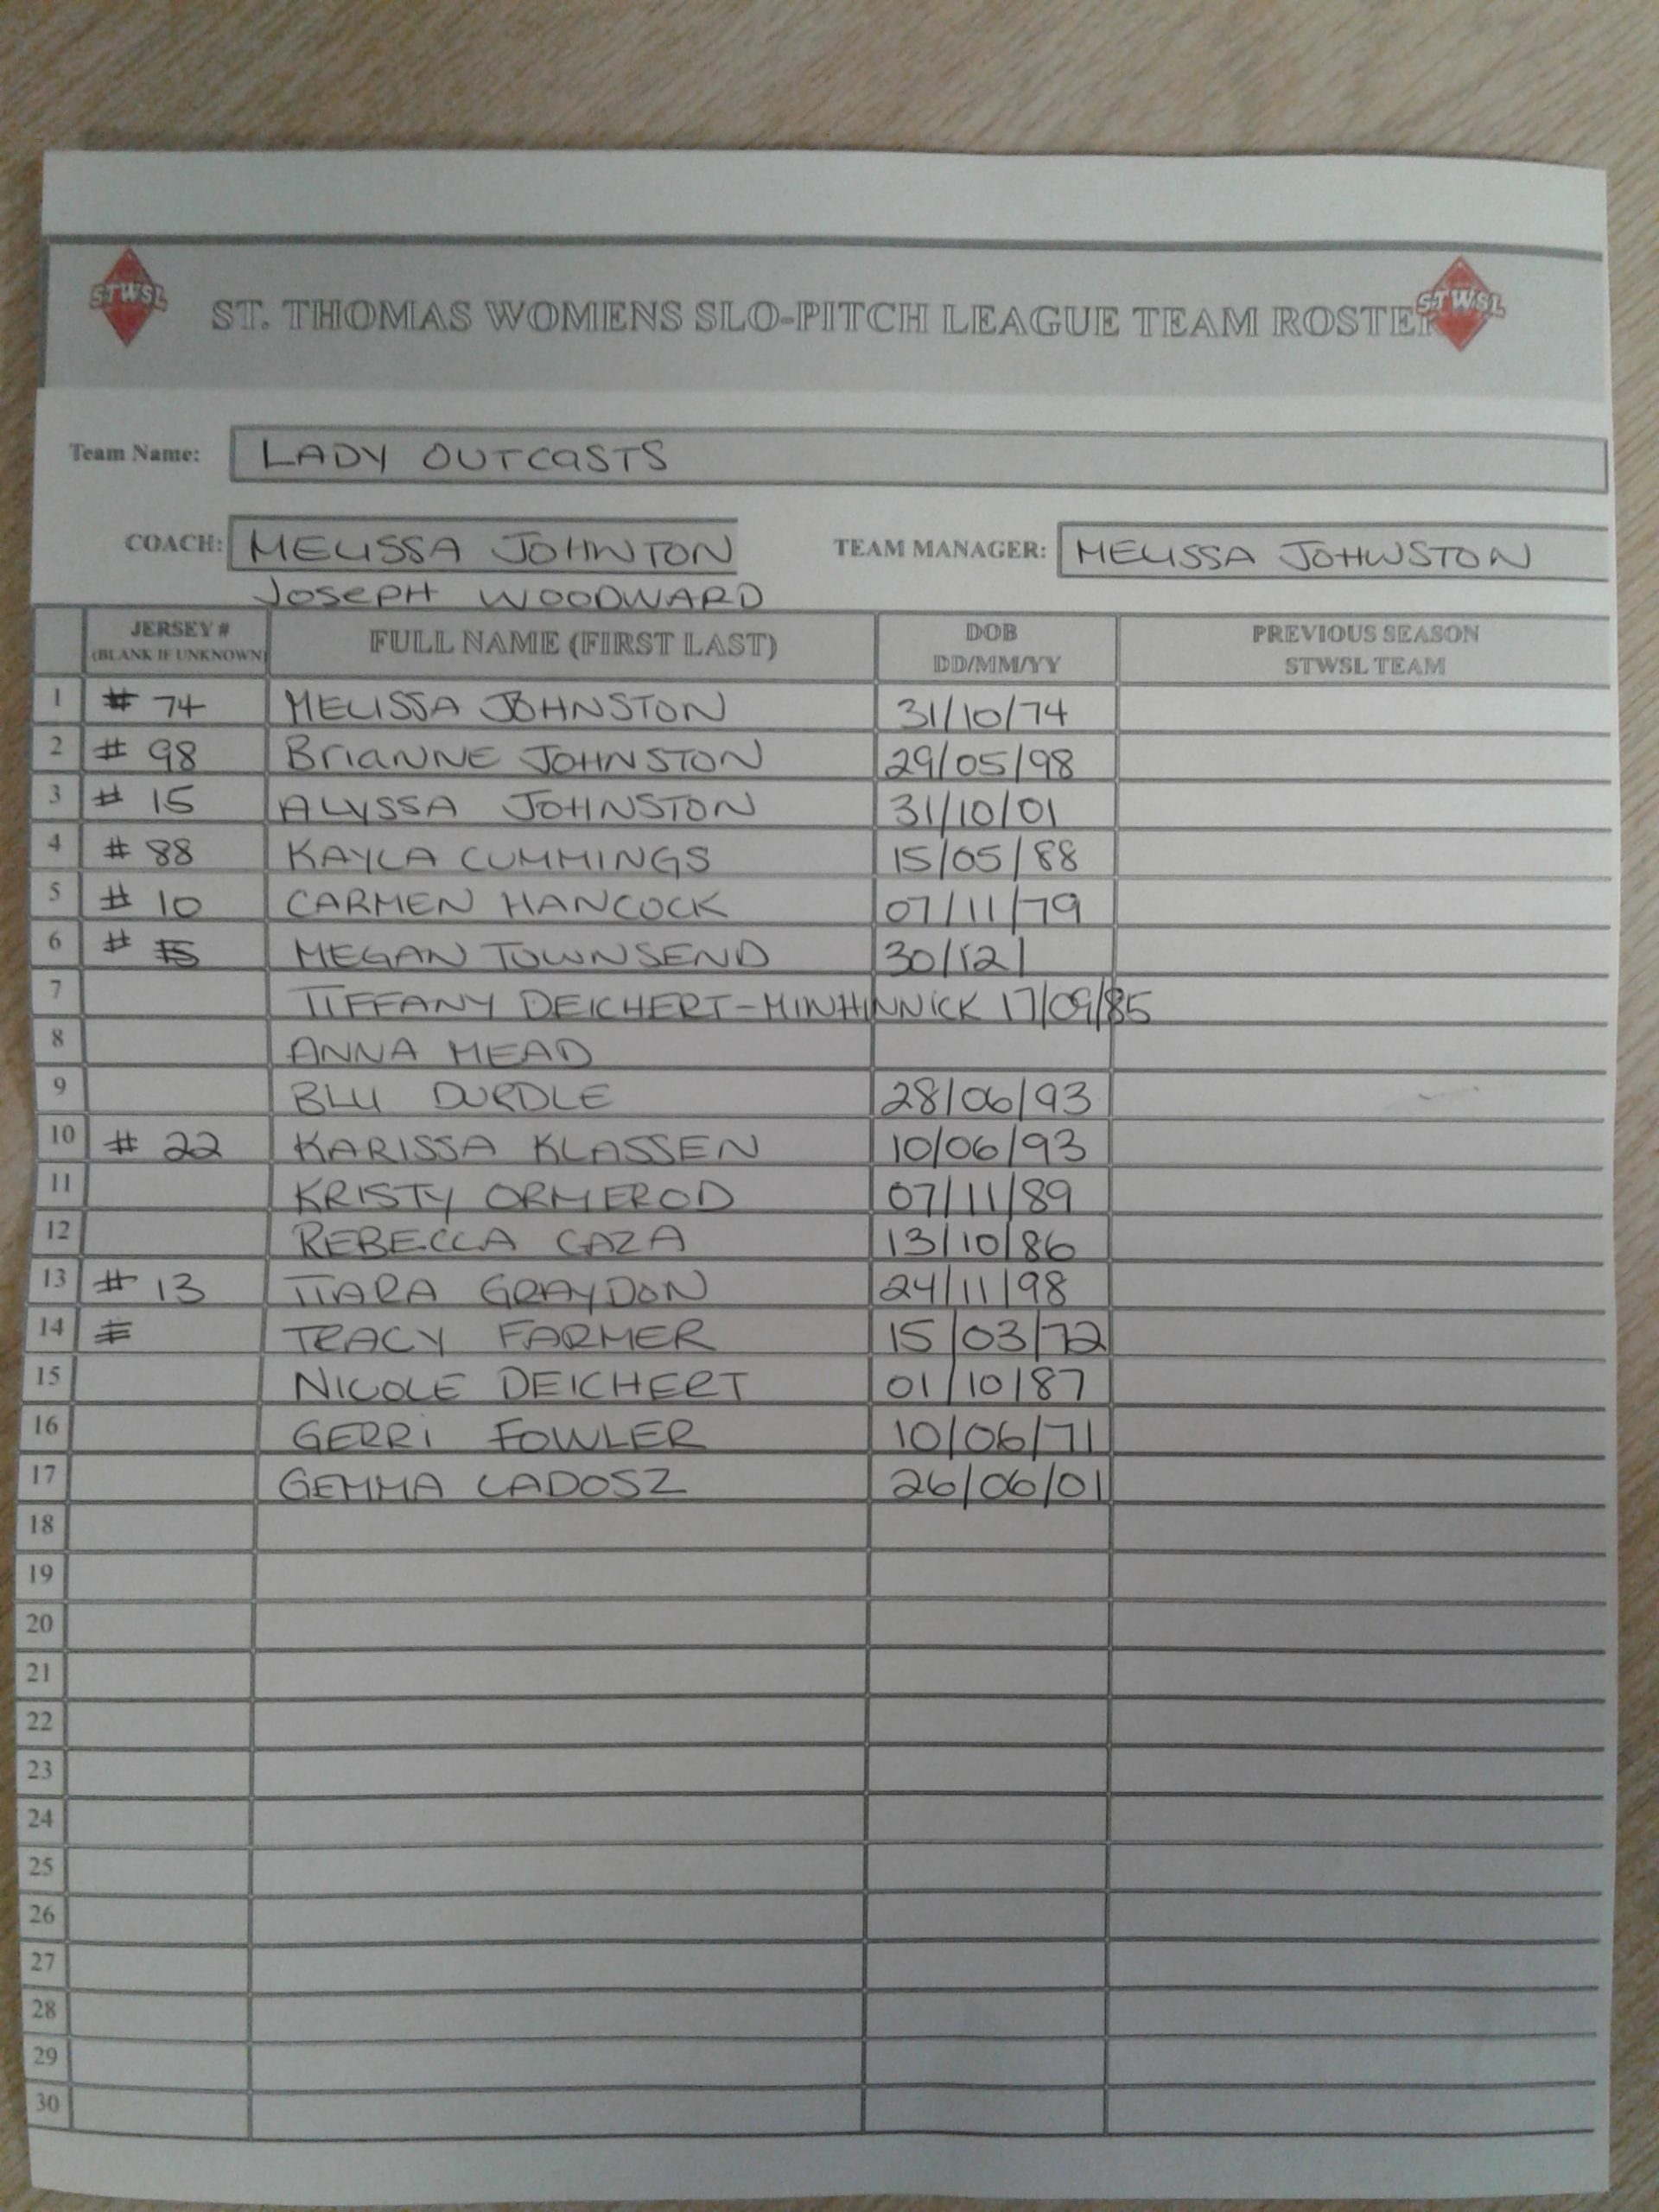 STWSL ST. THOMAS WOMENS SLO-PITCH LEAGUE TEAM ROSTER STWSL
Team Name: LADY OUTCASTS
COACH: MELISSA JOHNTON TEAM MANAGER: MELISSA JOHNSTON
JOSEPH WOODWARD
JERSEY # (BLANK IF UNKNOWN) FULL NAME (FIRST LAST) DOB DD/MM/YY PREVIOUS SEASON STWSL TEAM
1 # 74 MELISSA JOHNSTON 31/10/74
2 # 98 BRIANNE JOHNSTON 29/05/98
3 # 15 ALYSSA JOHNSTON 31/10/01
4 # 88 KAYLA CUMMINGS 15/05/88
5 # 10 CARMEN HANCOCK 07/11/79
6 # MEGAN TOWNSEND 30/12/
7 TIFFANY DEICHERT-MINHINNICK 17/09/85
8 ANNA MEAD
9 BLU DURDLE 28/06/93
10 # 22 KARISSA KLASSEN 10/06/93
11 KRISTY ORMEROD 07/11/89
12 REBECCA CAZA 13/10/86
13 # 13 TIARA GRAYDON 24/11/98
14 # TRACY FARMER 15/03/72
15 NICOLE DEICHERT 01/10/87
16 GERRI FOWLER 10/06/71
17 GEMMA LADOSZ 26/06/01
18
19
20
21
22
23
24
25
26
27
28
29
30